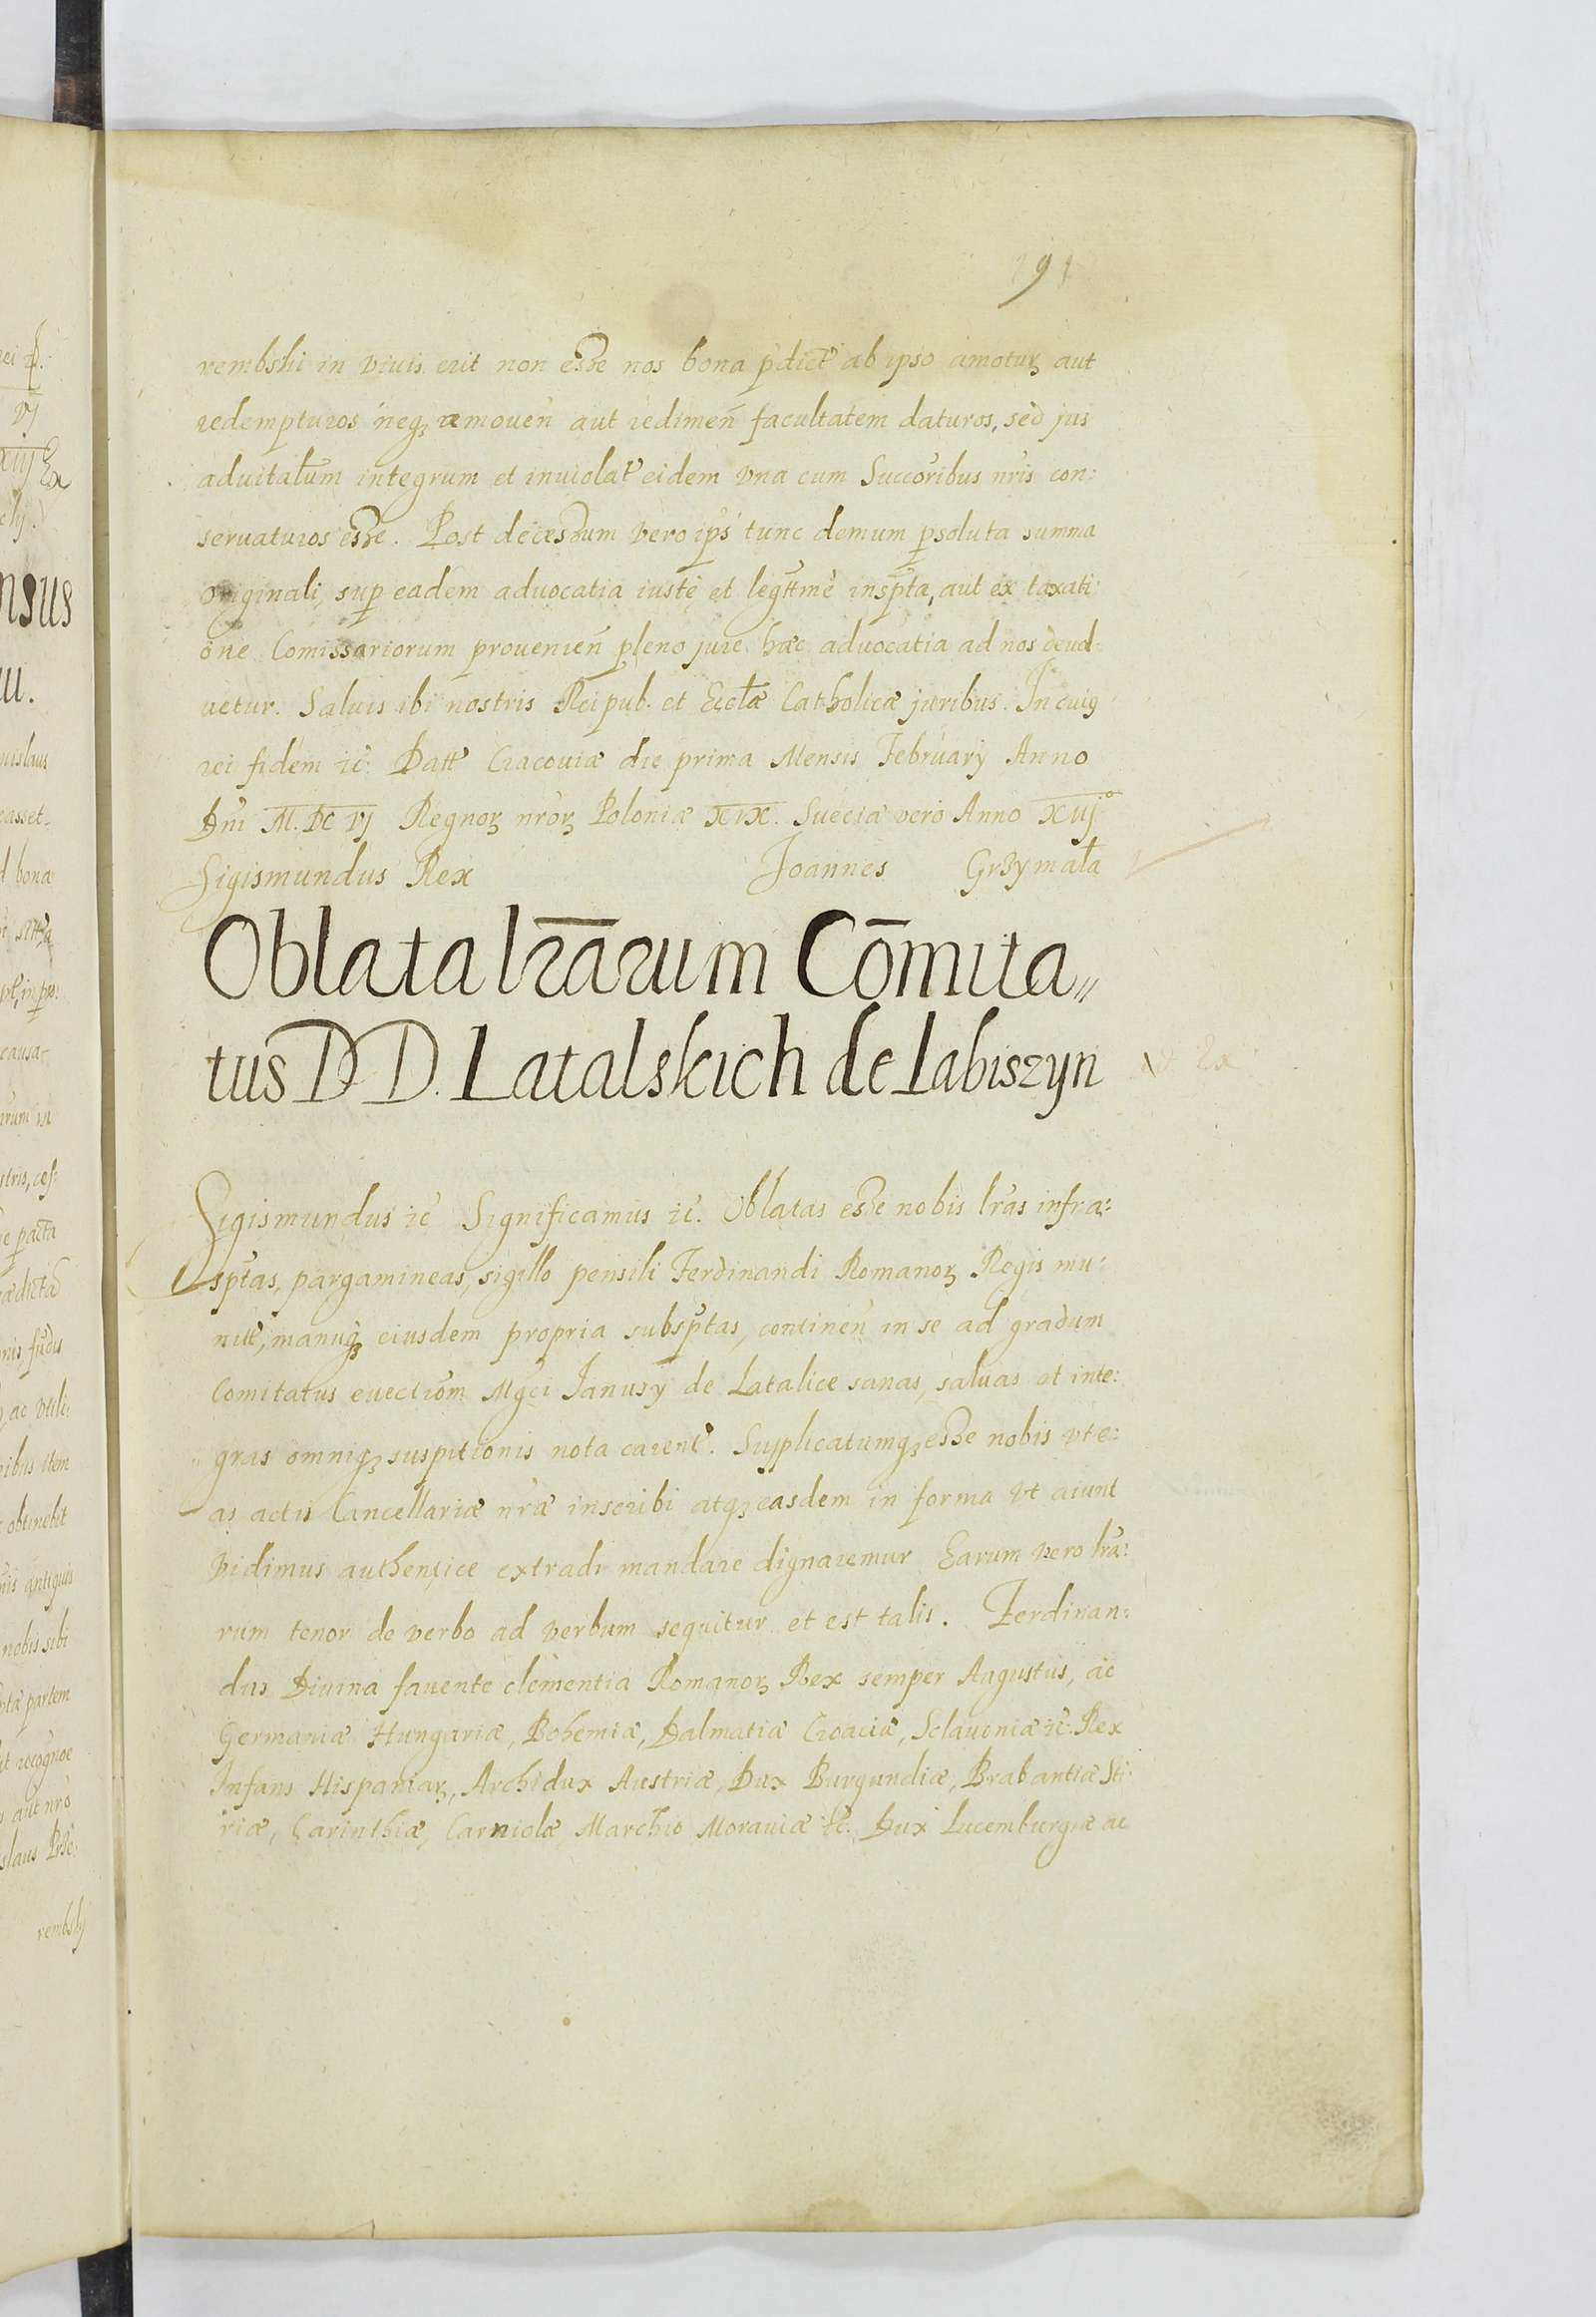 191
rembski in viuis erit non esse nos bona pdict ab ipso amoturꝫ aut
redempturos neqꝫ amouen̄ aut redimen̄ facultatem daturos, sed jus
aduitalūm integrum et inuiolat eidem vna cum Succōribus nr̄is con:
seruaturos esse. Post decessum vero ips̄ tunc demum psoluta summa
originali, sup eadem aduocatia iuste et legttme insp̄ta, aut ex taxati
one Comissariorum prouenien̄ pleno jure hæc aduocatia ad nos deuol
uetur. Saluis ibi nostris Reipub. et Eccl̄æ Catholicæ juribus. In cuiꝰ
rei fidem ꝛc̄: Datt Cracouiæ die prima Mensis February Anno
Dn̄i M. DC VIJ Regnoꝝ nr̄oꝝ Poloniæ XIX. Sueciæ vero Anno XIIJ°
Sigismundus Rex Joannes Grzymała
Oblata lr̄arum Com̄ita„
tus DD. Latalskich de Labiszyn
Sigismundus ꝛc̄ Significamus ꝛc̄. Oblatas esse nobis lr̄as infra:
sp̄tas, pargamineas, sigillo pensili Ferdinandi Romanoꝝ Regis mu:
nit, manuqꝫ eiusdem propria subsp̄tas, continen̄ in se ad gradum
Comitatus euectiōm Mgc̄i Janusy de Latalice sanas, saluas et inte:
gras omniqꝫ suspitionis nota carent. Supplicatumqꝫ esse nobis vt e:
as actis Cancellariæ nr̄æ inscribi atqꝫ easdem in forma vt aiunt
Vidimus authentice extradi mandare dignaremur Earum vero lr̄a:
rum tenor de verbo ad verbum sequitur et est talis. Ferdinan:
dus Diuina fauente clementia Romanoꝝ Rex semper Augustus, ac
Germaniæ Hungariæ, Bohemiæ, Dalmatiæ Croaciæ, Sclauoniæ ꝛc̄: Rex
Infans Hispaniaꝝ, Archidux Austriæ, Dux Burgundiæ, Brabantiæ Sti:
riæ, Carinthiæ, Carniolæ Marchio Morauiæ ꝛc̄. Dux Lucemburgiæ ac